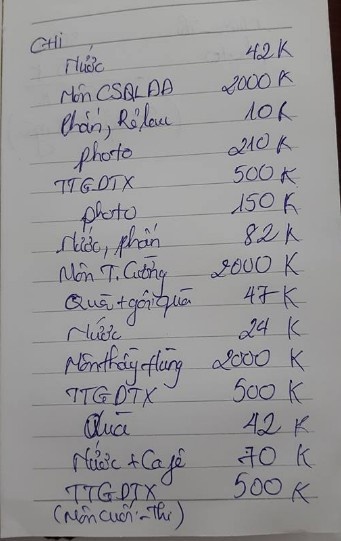 CHI
Nước 42K
Môn CSQLDA 2000K
Phấn, Rẻ lau 10K
photo 210K
TTGDTX 500K
photo 150K
Nước, phấn 82K
Môn T. Cường 2000K
Quà + gói quà 47K
Nước 24K
Môn thầy Hùng 2000K
TTGDTX 500K
Quà 42K
Nước + Cafê 70K
TTGDTX 500K
(Môn cuối - Thi)